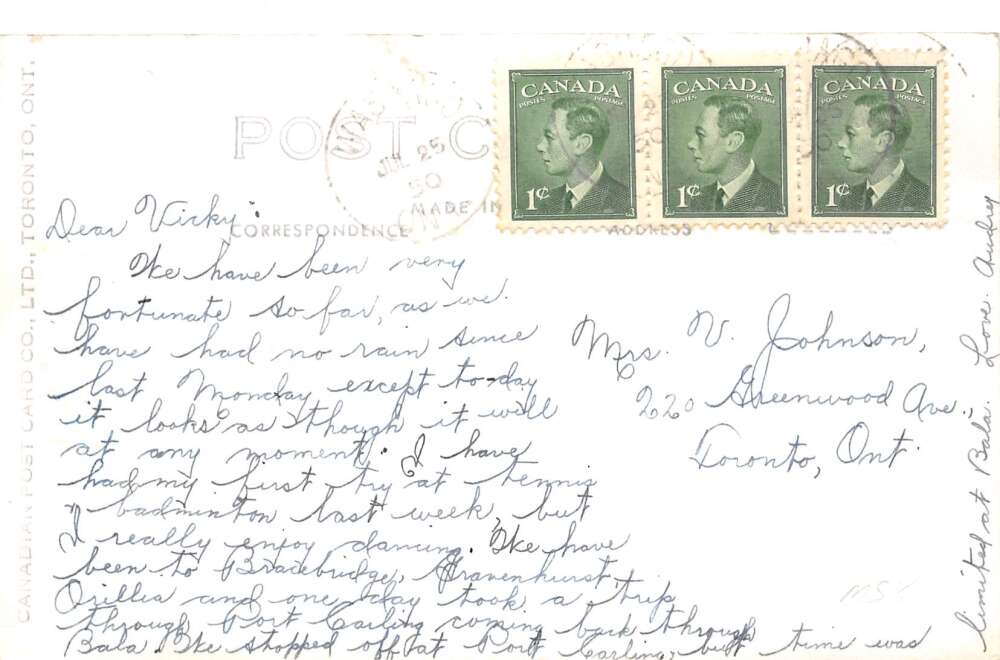 CANADIAN POST CARD CO., LTD., TORONTO, ONT.
POST C
JUL 25
50
MADE IN
CORRESPONDENCE
ADDRESS
CANADA
POSTES POSTAGE
1¢
CANADA
POSTES POSTAGE
1¢
CANADA
POSTES POSTAGE
1¢
Dear Vicky:
We have been very
fortunate so far, as we
have had no rain since
last Monday except to-day
it looks as though it will
at any moment. I have
had my first try at tennis
& badminton last week, but
I really enjoy dancing. We have
been to Bracebridge, Gravenhurst,
Orillia and one day took a trip
through Port Carling coming back through
Bala. We stopped off at Port Carling, but time was
limited at Bala. Love. Audrey
Mrs. V. Johnson,
220 Greenwood Ave.,
Toronto, Ont.